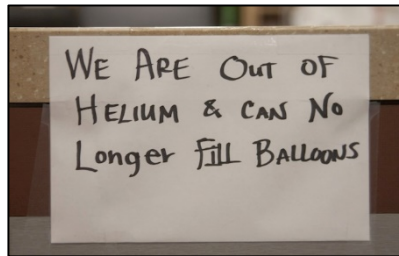 WE ARE OUT OF
HELIUM & CAN NO
Longer FILL BALLOONS